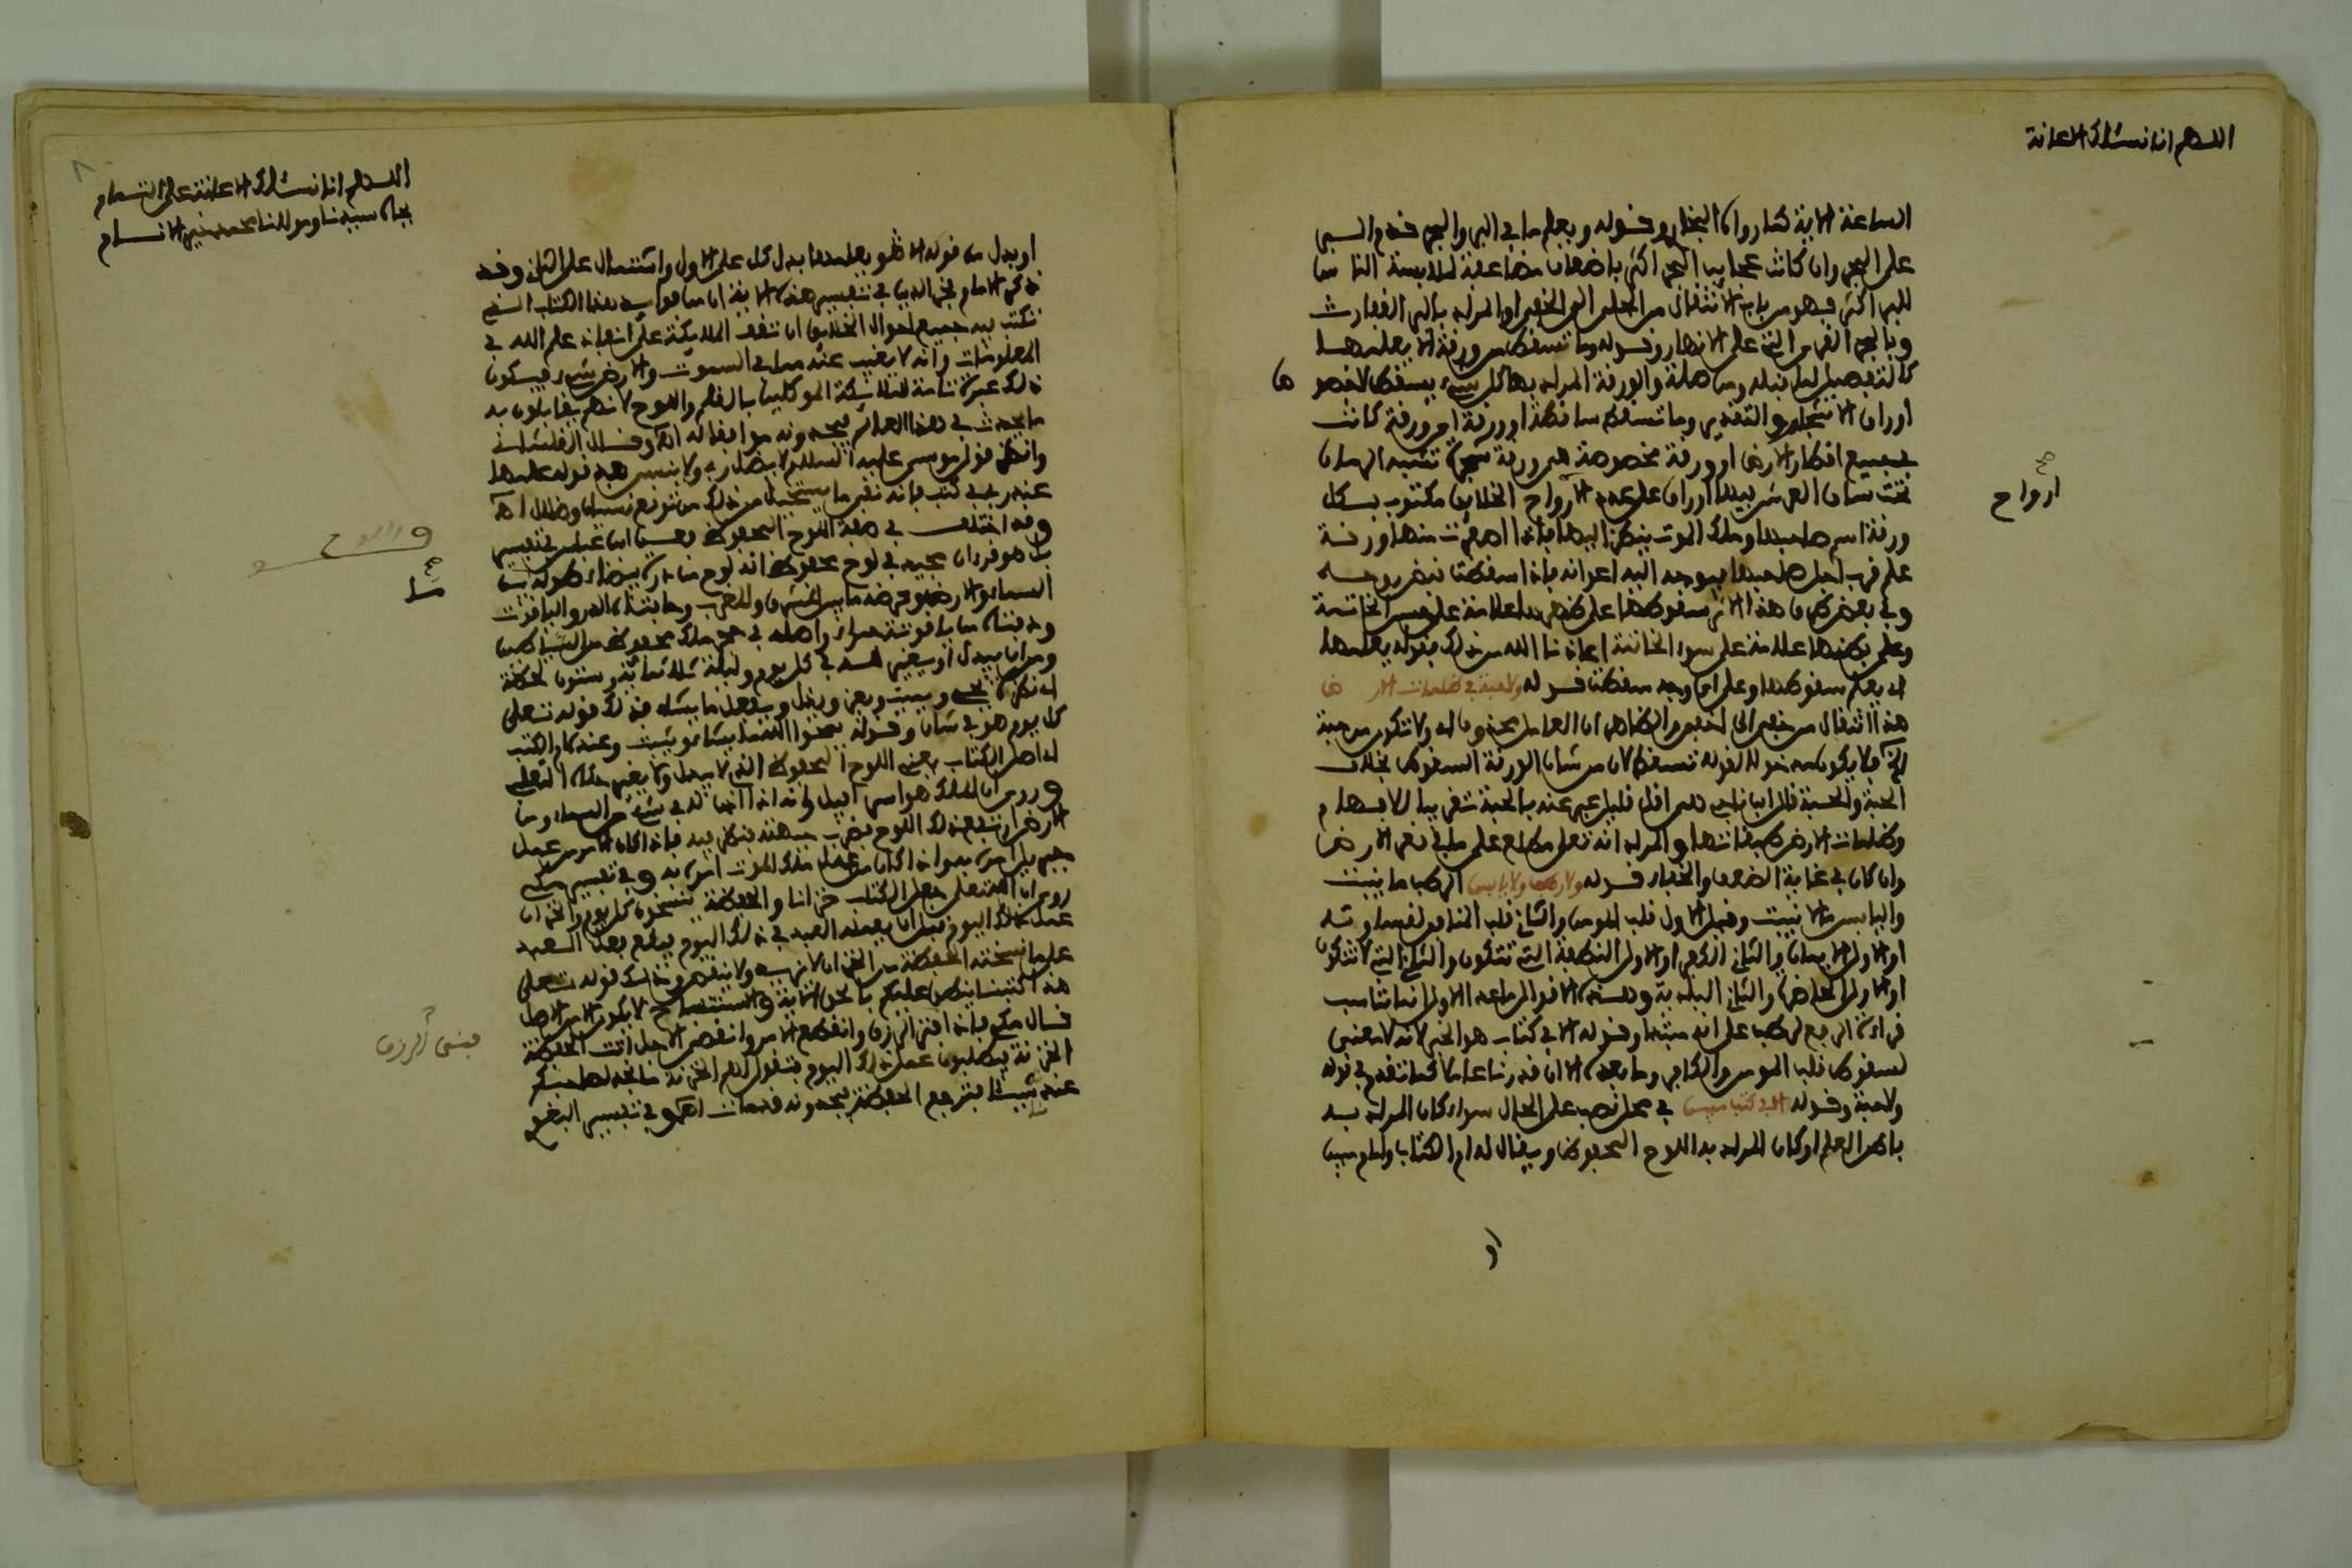 اللهم انا نسئلك الاعانة
الساعة الاية كما رواه البخاري وقوله ويعلم ما في البر والبحر قدم البر
على البحر وان كانت عجايب البحر اكثر باضعاف مضاعفة لملابسة الناس
للبر اكثر فهو من باب الانتقال من الجلي الى الخفي او المراد بالبر القفارت
وبالبحر القرى التي على الانهار وقوله وما تسقط من ورقة الا يعلمها
كالتفصيل لما قبله ومن صلة والورقة المراد بها كل شيء يسقط لا خصوص
اوراق الاشجار والتقدير وما تسقط ساقطة او ورقة اي ورقة كانت
في جميع اقطار الارض او ورقة مخصوصة هي ورقة شجرة تشبه الرمان
تحت ساق العرش بها اوراق على عدد الارواح الخلايق مكتوب بكل
ارواح صح
ورقة اسم صاحبها وملك الموت ينظر اليها فاذا اصفرت منها ورقة
علم قرب اجل صاحبها فيوجه اليه اعوانه فاذا سقطت قبض روحه
وفي بعض طرق هذا الاثر سقوطها على ظهرها علامة على حسن الخاتمة
وعلى بطنها علامة على سوء الخاتمة اعاذنا الله من ذلك فقوله يعلمها
اي يعلم سقوطها وعلى اي وجه سقطت قوله ولا حبة في ظلمات الارض
هذا انتقال من خفي الى اخفى والظاهر ان العامل محذوف اي ولا تكون من حبة
الخ فلا يكون مدخولا لقوله تسقط لان من شان الورقة السقوط بخلاف
الحبة والحسبة قال ابن ناجي هي اقل قليل عبر عنه بالحبة تقريبا للافهام
وظلمات الارض طبقاتها والمراد انه تعلى مطلع على ما في قعر الارض
وان كان في غاية الضعف والخفاء قوله ولا رطب ولا يابس الرطب ما ينبت
واليابس ما لا ينبت وقيل الاول قلب المومن والثاني قلب المنافق لقساوته
او الاول الايمان والثاني الكفر او الاول النطفة التي تتكون والثاني التي لا تتكون
او الاول الحاضرة والثاني البادية وهذه الاقوال ما عدا الاول انما تناسب
قراءة الرفع لرطب على انه مبتدا وقوله الا في كتاب هو الخبر لانه لا معنى
لسقوط قلب المومن والكافر وما بعده الا ان قدرنا عاملا كما تقدم في قوله
ولا حبة وقوله الا في كتاب مبين في محل نصب على الحال سواء كان المراد به
باهر العلم او كان المراد به اللوح المحفوظ ويقال له ام الكتاب وامام مبين
او
اللهم انا نسئلك الاعانة على التمام
بجاه سيدنا ومولانا محمد خير الانام
او بدل من قوله الا هو ويعلمها بدل كل على الاول واشتمال على الثاني وقد
ذكر الامام فخر الدين في تفسير هذه الاية ان من فوايد هذا الكتاب الذي
تكتب به جميع احوال الخلايق ان تقف الملايكة على انفاذ علم الله في
المعلومات وانه لا يغيب عنه مما في السموت والارض شيء فيكون
ذلك عبرة تامة للملايكة الموكلين بالقلم واللوح لانهم يقابلون به
ما يحدث في هذا العالم فيجدونه موافقا له اه وقال القلشاني
وانظر قول موسى عليه السلم لا يضل ربي ولا ينسى بعد قوله علمها
عند ربي في كتب فانه نفى ما يتخيل من ذلك من توقع نسيان وضلال اه
وقد اختلف في صفة اللوح المحفوظ فعن ابن عباس في تفسير
بل هو قرءان مجيد في لوح محفوظ انه لوح من درة بيضاء طوله ما بين
السماء والارض وعرضه ما بين المشرق والمغرب وحافتاه الدر والياقوت
ودفتاه من ياقوتة حمراء واصله في حجر ملك محفوظ من الشياطين
ومن ان يبدل او يغير لله في كل يوم وليلة ثلاثمائة وستون لحظة
اي نظرة يحي ويميت ويعز ويذل ويفعل ما يشاء فذلك قوله تعلى
كل يوم هو في شان وقوله يمحوا الله ما يشاء ويثبت وعنده ام الكتب
اي اصل الكتاب يعني اللوح المحفوظ الذي لا يبدل ولا يغير
وروي ان الملك هو اسرافيل وانه اذا اذن له في شيء من السماء وما
الارض ارتفع ذلك اللوح فضرب جبهته فينظر فيه فاذا كان الامر من عمل
جبريل امره به وان كان من عمل ملك الموت امره به وفي تفسير مكي
روي ان الله تعلى جعل للكتاب خزانا والحفظة ينسخون كل يوم والخزان
عمل ذلك اليوم قبل ان يعمله العبد في ذلك اليوم فيقع بعمل العبد
على ما نسخته الحفظة من الخزان لا يزيد ولا ينقص وذلك قوله تعلى
هذا كتبنا ينطق عليكم بالحق الاية والاستنساخ لا يكون الا من الاصل
قال مكي فاذا افنى الرزق وانقطع الامر وانقضى الاجل اتت الحفظة
فنى الرزق
الخزنة يطلبون عمل ذلك اليوم فتقول لهم الخزنة ما نجد لصاحبكم
عندنا شيئا فترجع الحفظة فيجدونه قد مات اه وفي تفسير البغوي